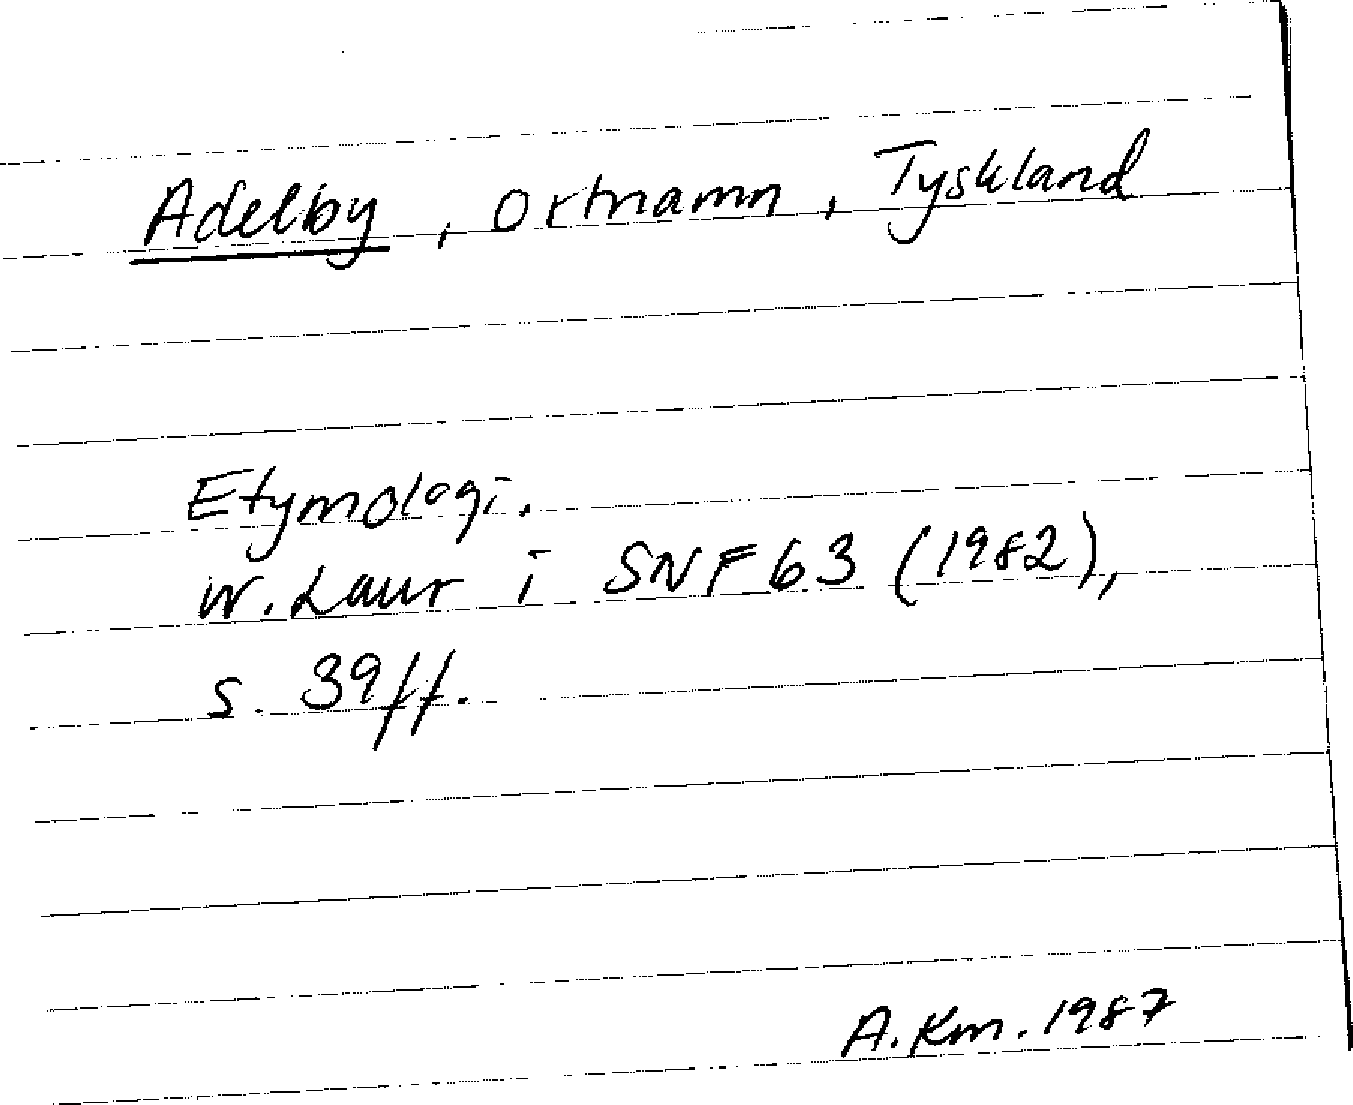 Adelby, Ortnamn, Tyskland
Etymologi.
W. Laur i SNF 63 (1982),
s. 39 ff.
A. Km. 1987